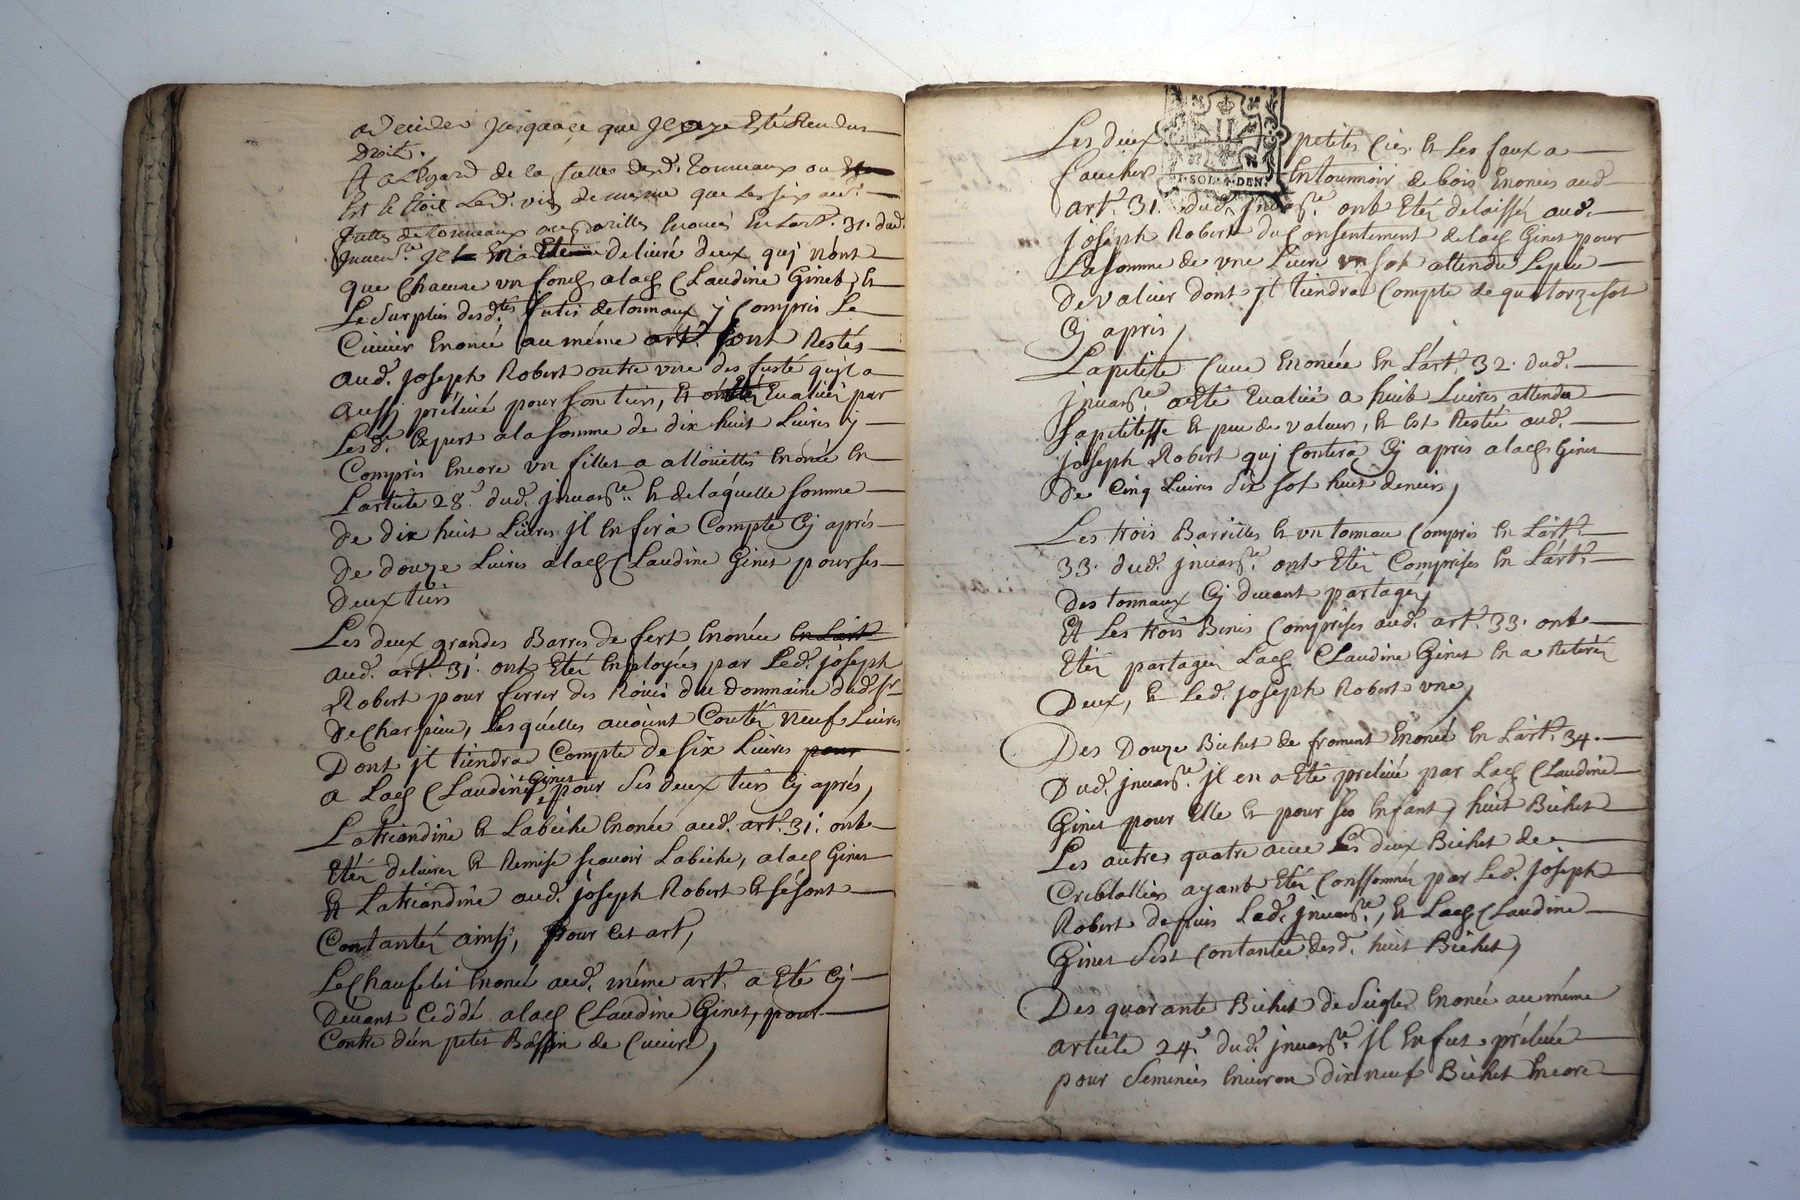 a decider jusquaçe que
droit.
Et a Legard de la
Est Led. vin de mesme que Les six aud.
futtes de tonneaux Enoncés En Lart. 31. dud.
delivré deux quj n'ont
que Chacune vn fond, a lad. Claudine Ginet, et
Le surplus desd. futtes de tonnaux, y Compris Le
Cuvier Enoncé au méme art. sont Restés
aud. joseph Robert outre vne des futté quyl a
aussj prélevé pour son tiers, Et Evalüér par
Lesd. Expert a la somme de dix huit Livres y
Compris Encore vn fillet a allouette Enoncée En
Lartícle 28. dud. jnvare. Et de laquelle somme
de dix huit Livres jl En fera Compte Cj aprés
de douze Livres a lad. Claudine Ginet pour ses
deux tiers
Les deux grandes Barres de fert Enoncée En Lart
aud. art. 31. ont Etéz Employées par Led. joséph
Robert pour ferrer des Roües du dommaine dud. sr
de Charpine, Lesquelles avoint Coutéz neuf Livres
Dont jl tiendra Compte de six Livres pour
a Lad. Claudine Ginet pour ses deux tiers Cj aprés,
La triandine Et La béche Enoncée aud. art. 31. ont
Etéz delivrez Et Remise scavoir La béche, a lad. Ginet
Et La triandine aud. joseph Robert Et se sont
Contantéz ainsj, pour Cet art,
Le Chaufelit Enoncé aud. méme art. a Eté Cj
devant Ceddé a lad. Claudine Ginet, pour
Contre d'un petit Bassin de Cuivre,
Les deux petites Cies Et Les faux a
faucher Entonnoir de bois Enoncés aud.
art. 31. dud. jnvare. ont Etéz delaissér aud.
joséph Robert du Consentement de lad. Ginet pour
La somme de vne Livre vn sol attendu Le peu
de valeur dont jl tiendra Compte de quatorze sol
Cj apres,
La petite Cuve Enoncée En L'art. 32. dud.
jnvare. a Eté Evalüé a huit Livres attendu
sa petitesse Et peu de valeur, Et Est Restée aud.
joséph Robert quj Contera Cj aprés a lad. Ginet
de Cinq Livres six sol huit deniers,
Les trois Barrilles Et vn tonnau Compris En L'art.
33. dud. jnvare. ont Etéz Comprises En L'art.
des tonnaux Cj devant partagér,
Et Les trois Benes Comprises aud. art. 33. ont
Etéz partagér Lad. Claudine Ginet En a Retiréz
Deux, Et Led. joseph Robert vne,
Des Douze Bichet de froment Enoncé En L'art. 34.
Dud. jnvare. jl en a Eté prelevé par Lad. Claudine
Ginet pour Elle Et pour ses Enfant, huit Bichet
Les autres quatre avec Les deux Bichet de
Criblalliés ayant Etéz Conssomméz par Led. joseph
Robert depuis Led. jnvare., Et Lad. Claudine
Ginet s'est Contantée desd. huit Bichet,
Des quarante Bichet de seigle Enoncé au méme
article 24. dud. jnvare. jl En fut prélevé
pour semences Environ dix neuf Bichet Encore
SOL DEN.